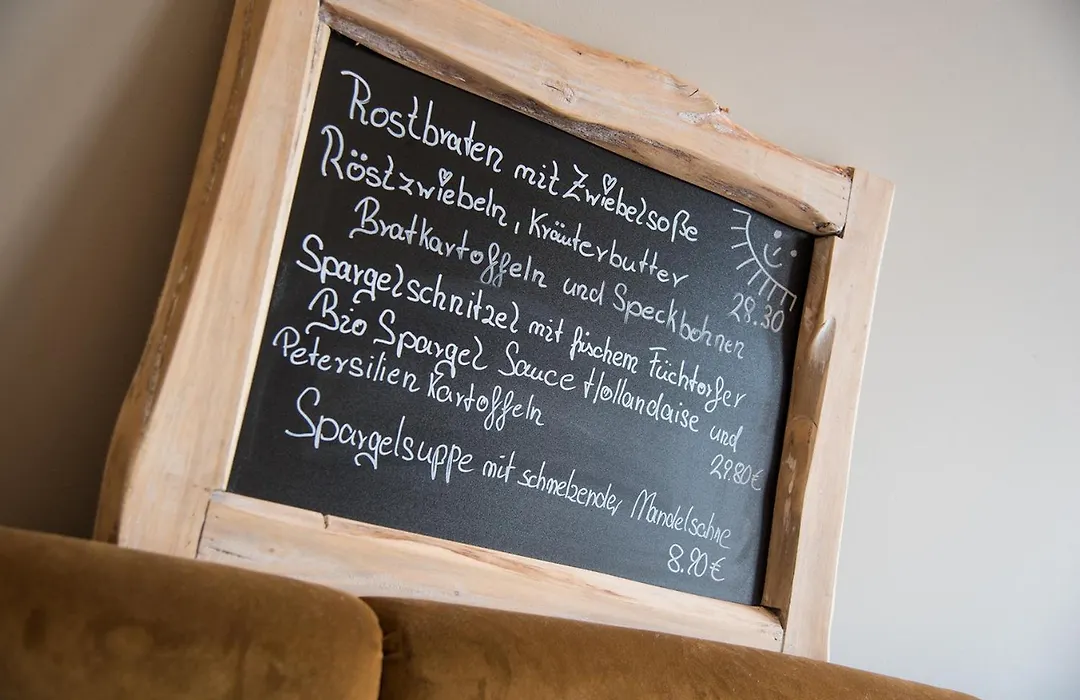 Rostbraten mit Zwiebelsoße
Röstzwiebeln, Kräuterbutter
Bratkartoffeln und Speckbohnen
28.30
Spargelschnitzel mit frischem Füchtorfer
Bio Spargel Sauce Hollandaise und
Petersilien Kartoffeln
29.80€
Spargelsuppe mit schmelzender Mandelsahne
8.90€